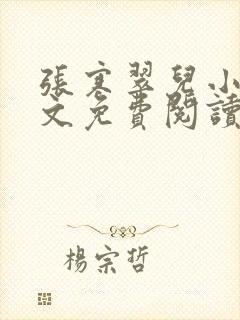 張寒翠兒小
文免費閱讀
楊宗哲